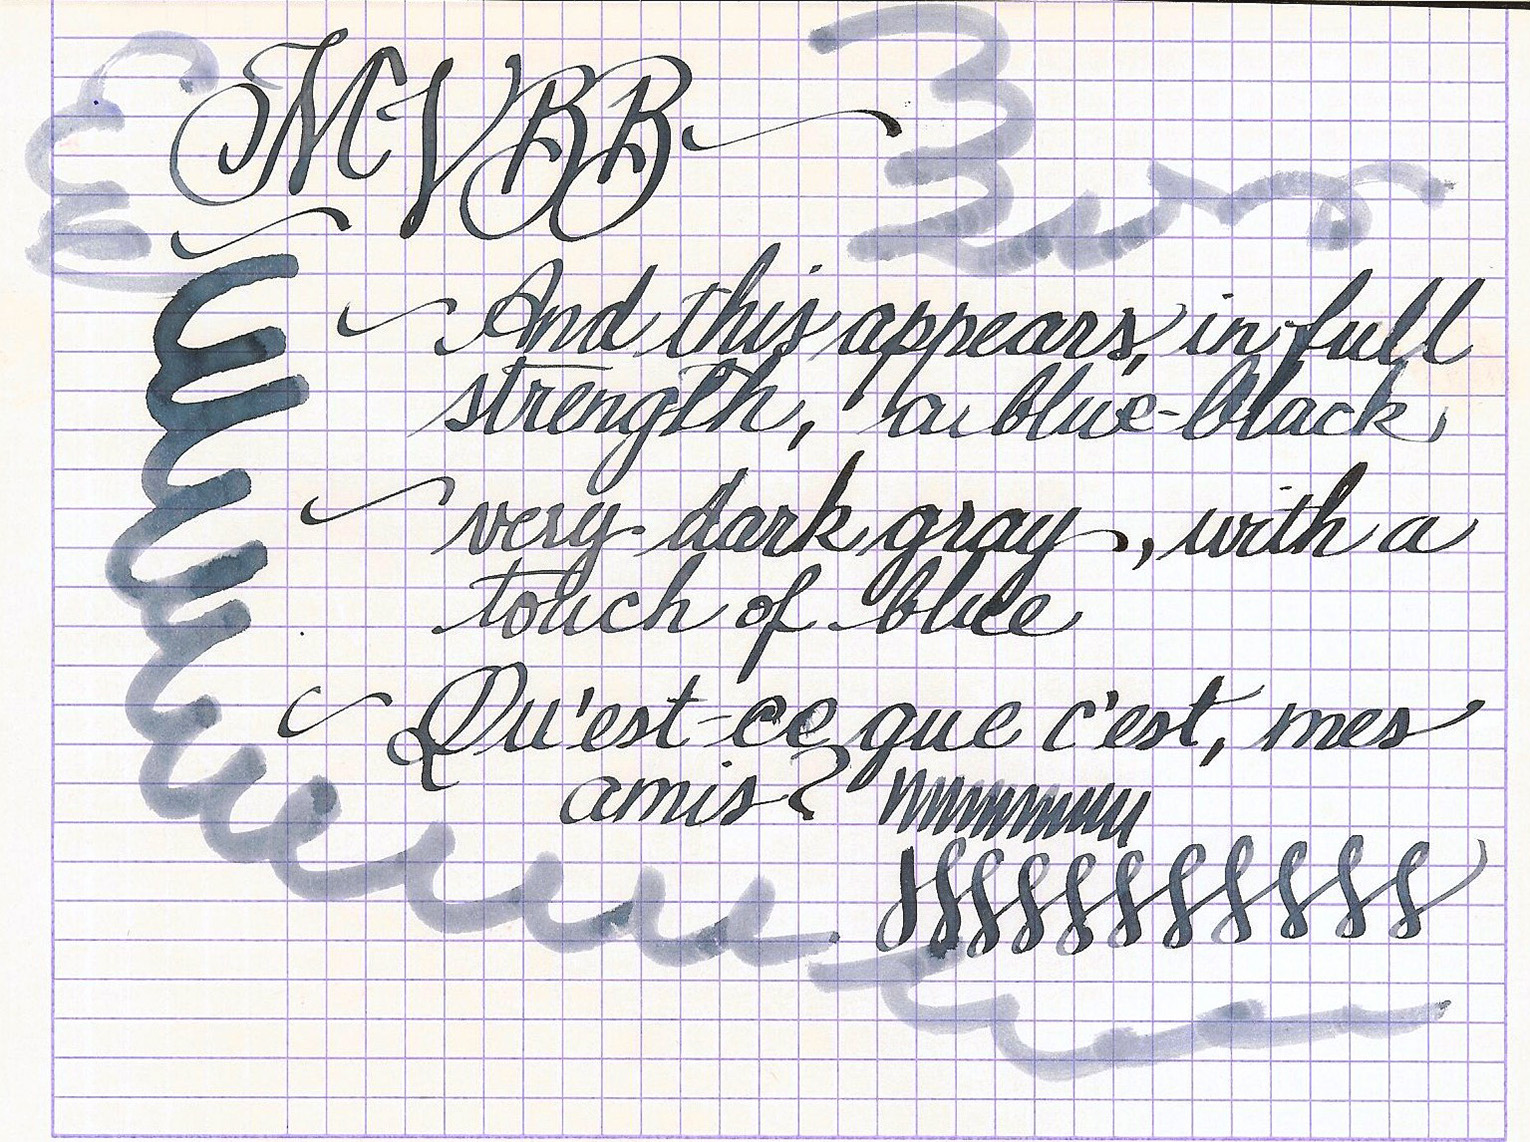 MVBB
And this appears, in full
strength, a blue-black,
very dark gray, with a
touch of blue
Qu'est-ce que c'est, mes
amis?